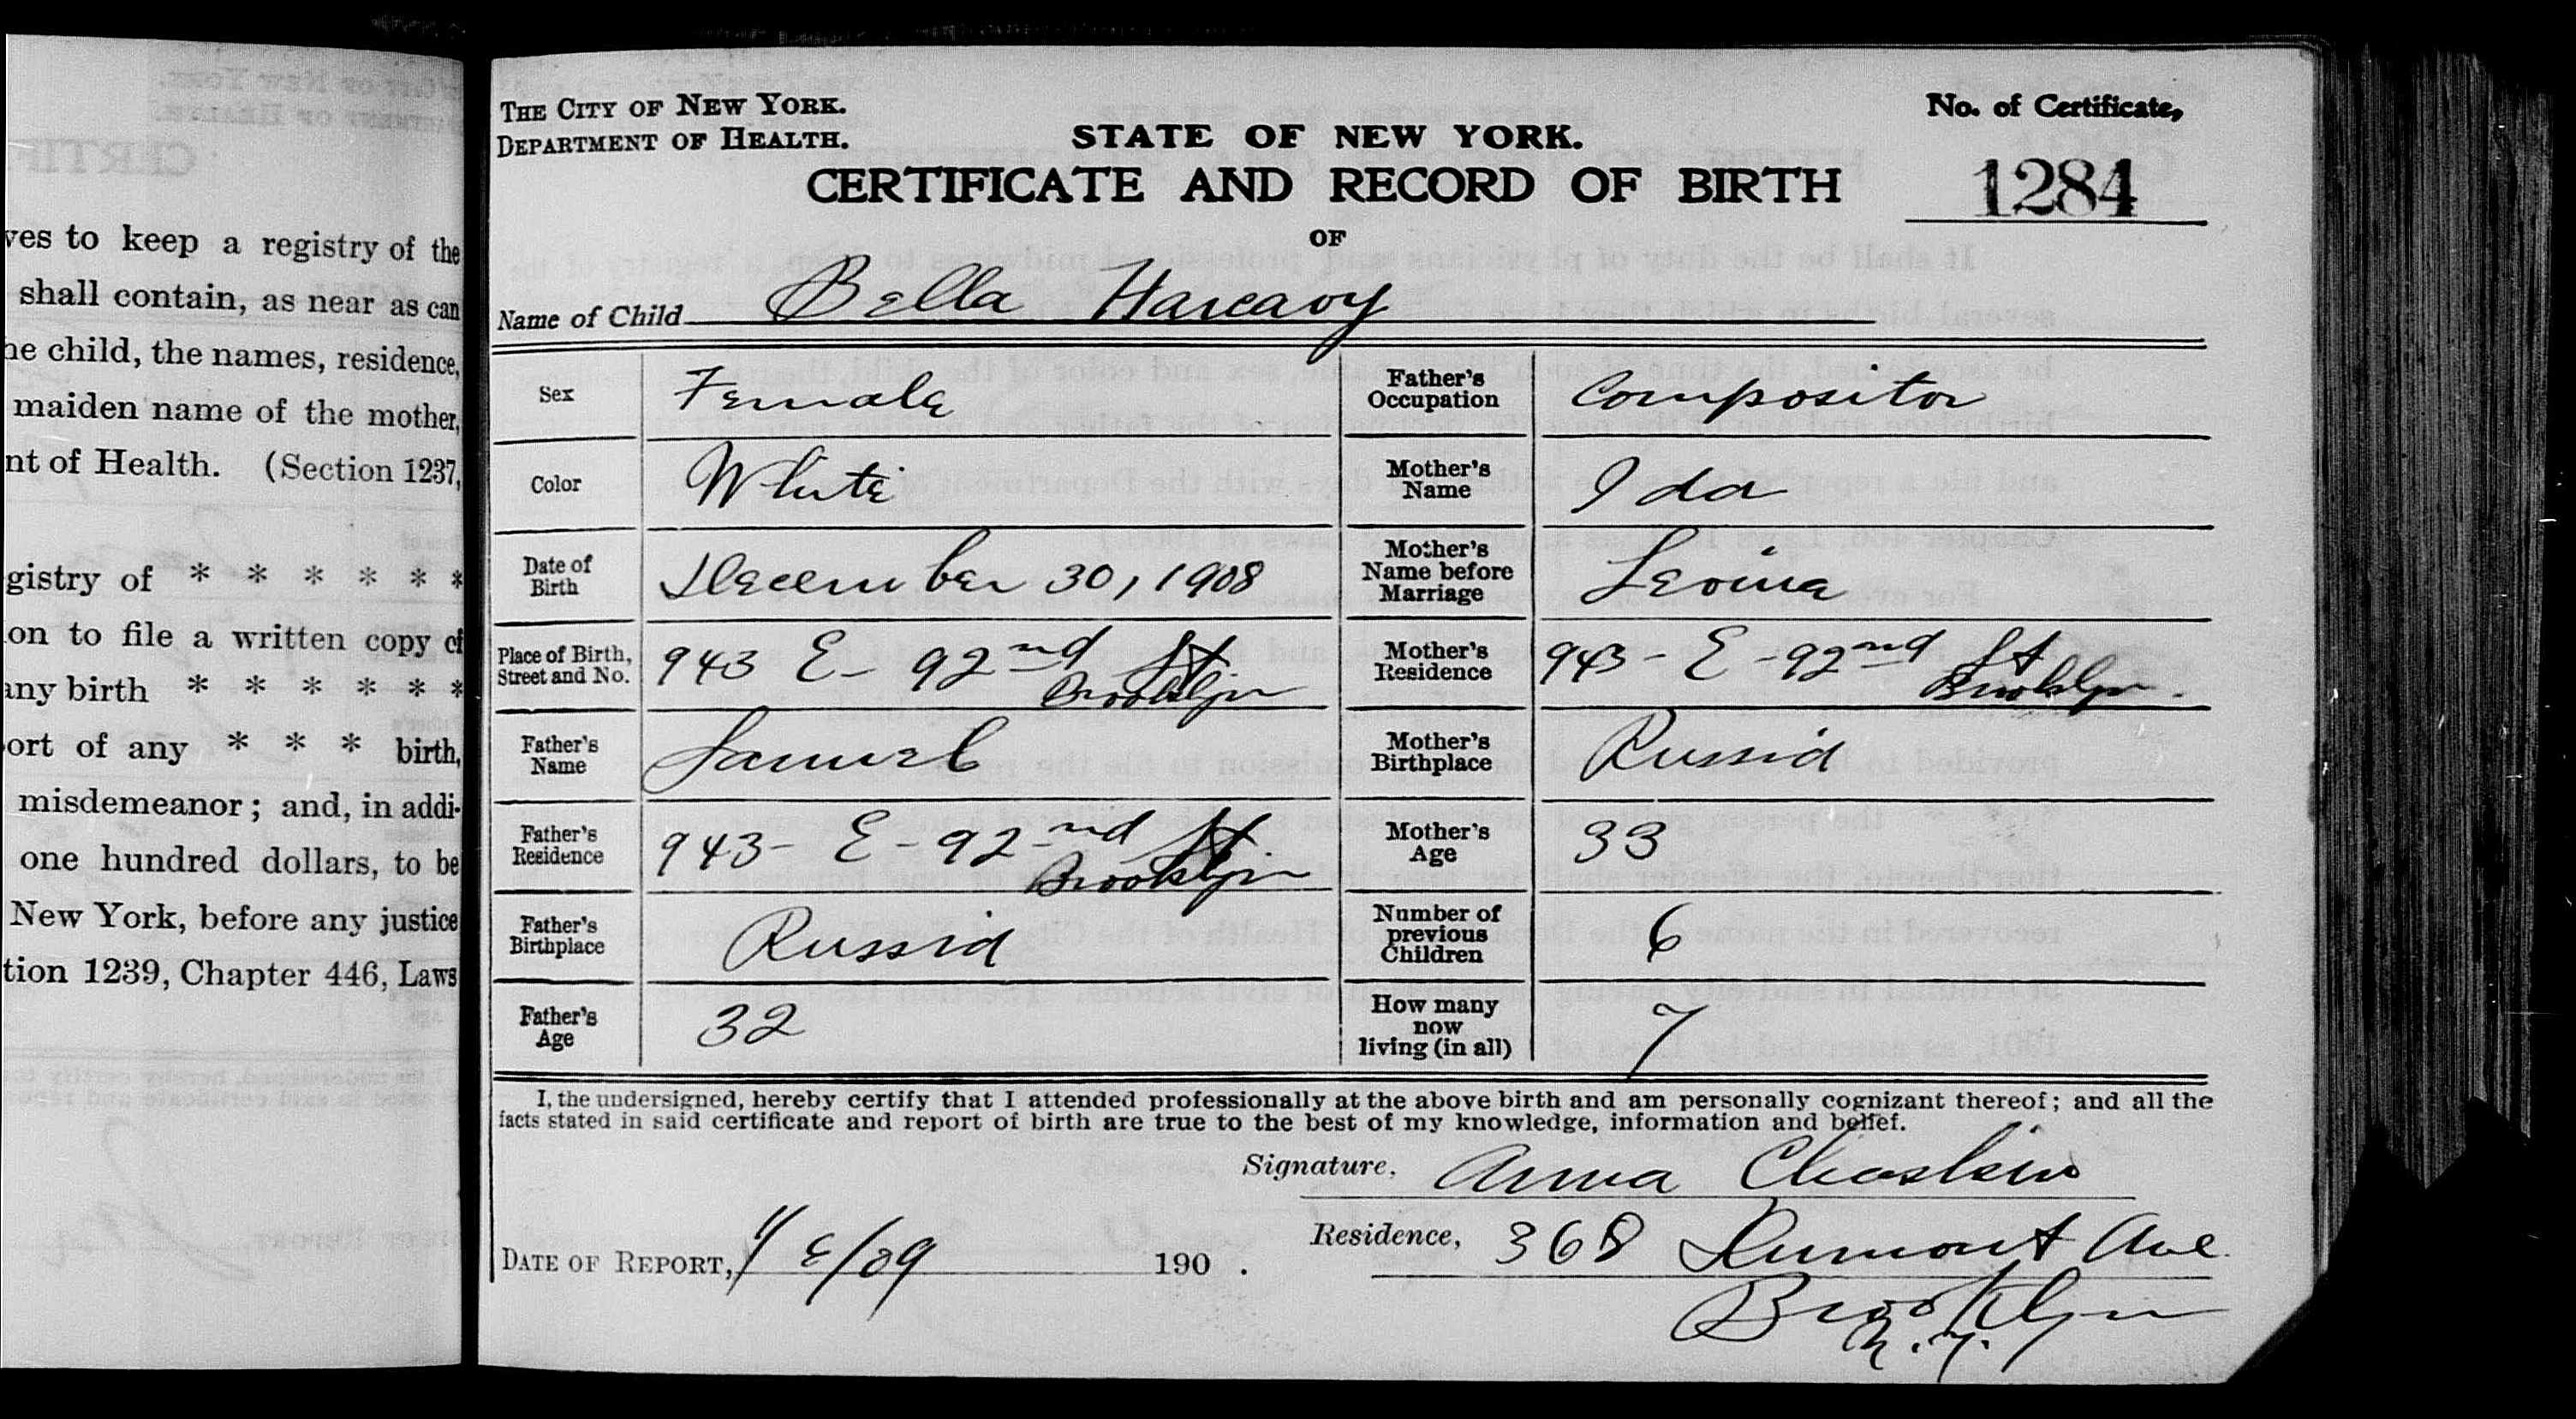 ves to keep a registry of the
shall contain, as near as can
he child, the names, residence,
maiden name of the mother,
nt of Health. (Section 1237,
gistry of * * * * * *
on to file a written copy of
any birth * * * * * *
ort of any * * * birth,
misdemeanor; and, in addi-
one hundred dollars, to be
New York, before any justice
tion 1239, Chapter 446, Laws
THE CITY OF NEW YORK.
DEPARTMENT OF HEALTH.
STATE OF NEW YORK.
CERTIFICATE AND RECORD OF BIRTH
OF
No. of Certificate,
1284
Name of Child Bella Harcavy
Sex Female
Father's Occupation Compositor
Color White
Mother's Name Ida
Date of Birth December 30, 1908
Mother's Name before Marriage Levina
Place of Birth, Street and No. 943 E - 92nd St Brooklyn
Mother's Residence 943 - E - 92nd St Brooklyn.
Father's Name Samuel
Mother's Birthplace Russia
Father's Residence 943 - E - 92nd St Brooklyn
Mother's Age 33
Father's Birthplace Russia
Number of previous Children 6
Father's Age 32
How many now living (in all) 7
I, the undersigned, hereby certify that I attended professionally at the above birth and am personally cognizant thereof; and all the
facts stated in said certificate and report of birth are true to the best of my knowledge, information and belief.
Signature, Anna Chaskin
Residence, 368 Dumont Ave.
Brooklyn
N.Y.
DATE OF REPORT, 190 .